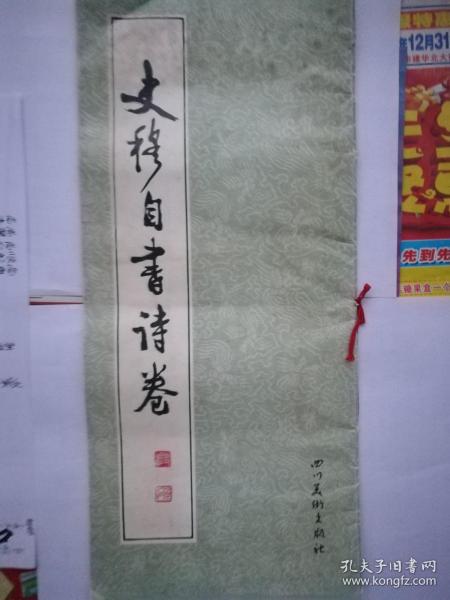 史穆自书诗卷
四川美術出版社
12月31
先到先
糖果盒一个
孔夫子旧书网
www.kongfz.com